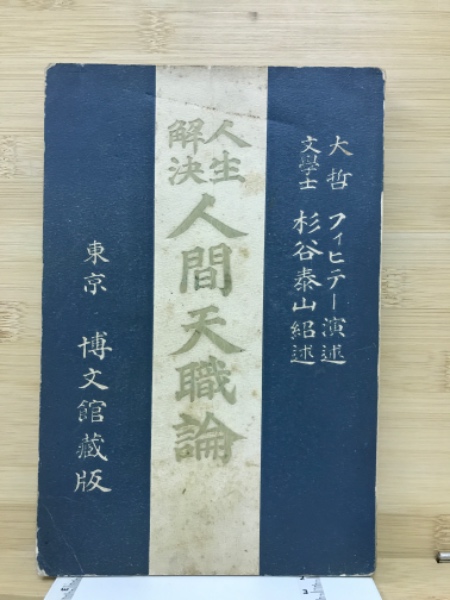 大哲 フィヒテー演述
文學士 杉谷泰山紹述
人生
解決
人間天職論
東京 博文館蔵版